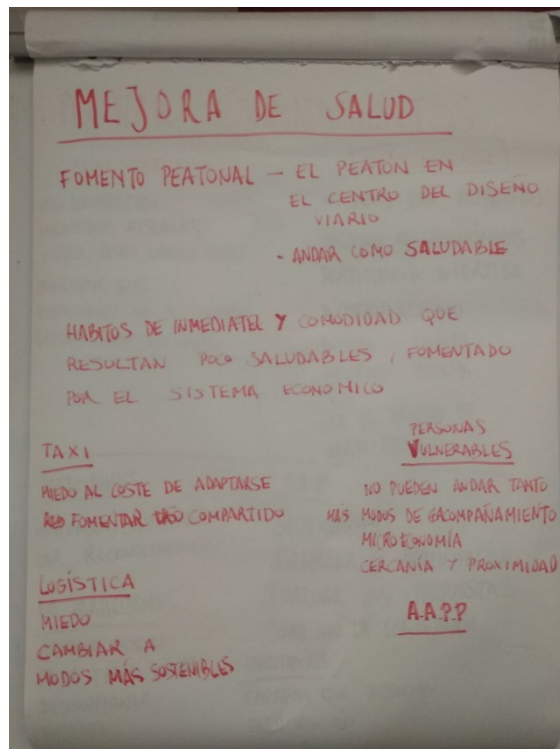 MEJORA DE SALUD
FOMENTO PEATONAL — EL PEATÓN EN
EL CENTRO DEL DISEÑO
VIARIO
- ANDAR COMO SALUDABLE
HABITOS DE INMEDIATEZ Y COMODIDAD QUE
RESULTAN POCO SALUDABLES, FOMENTADO
POR EL SISTEMA ECONOMICO
TAXI
MIEDO AL COSTE DE ADAPTARSE
FOMENTAR COMPARTIDO
LOGÍSTICA
MIEDO
CAMBIAR A
MODOS MÁS SOSTENIBLES
PERSONAS
VULNERABLES
NO PUEDEN ANDAR TANTO
MÁS MODOS DE ACOMPAÑAMIENTO
MICROECONOMÍA
CERCANÍA Y PROXIMIDAD
A.A.P.P